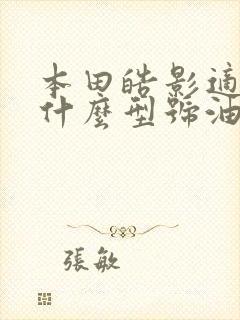 本田皓影適
什麼型號油
張敏